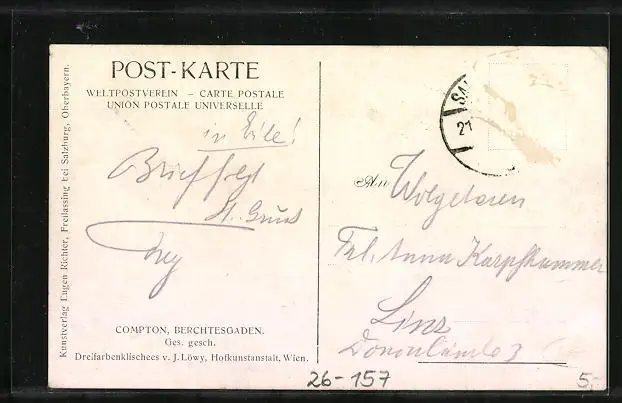 POST-KARTE
WELTPOSTVEREIN – CARTE POSTALE
UNION POSTALE UNIVERSELLE
in Eile!
Brief folgt
Gruss
COMPTON, BERCHTESGADEN.
Ges. gesch.
Dreifarbenklischees v. J. Löwy, Hofkunstanstalt, Wien.
Kunstverlag Eugen Richter, Freilassing bei Salzburg, Oberbayern.
SAL
21
An
Wolgeboren
Frl. Anna Karpfhammer
Linz
Donaulände 3
26-157
5,-